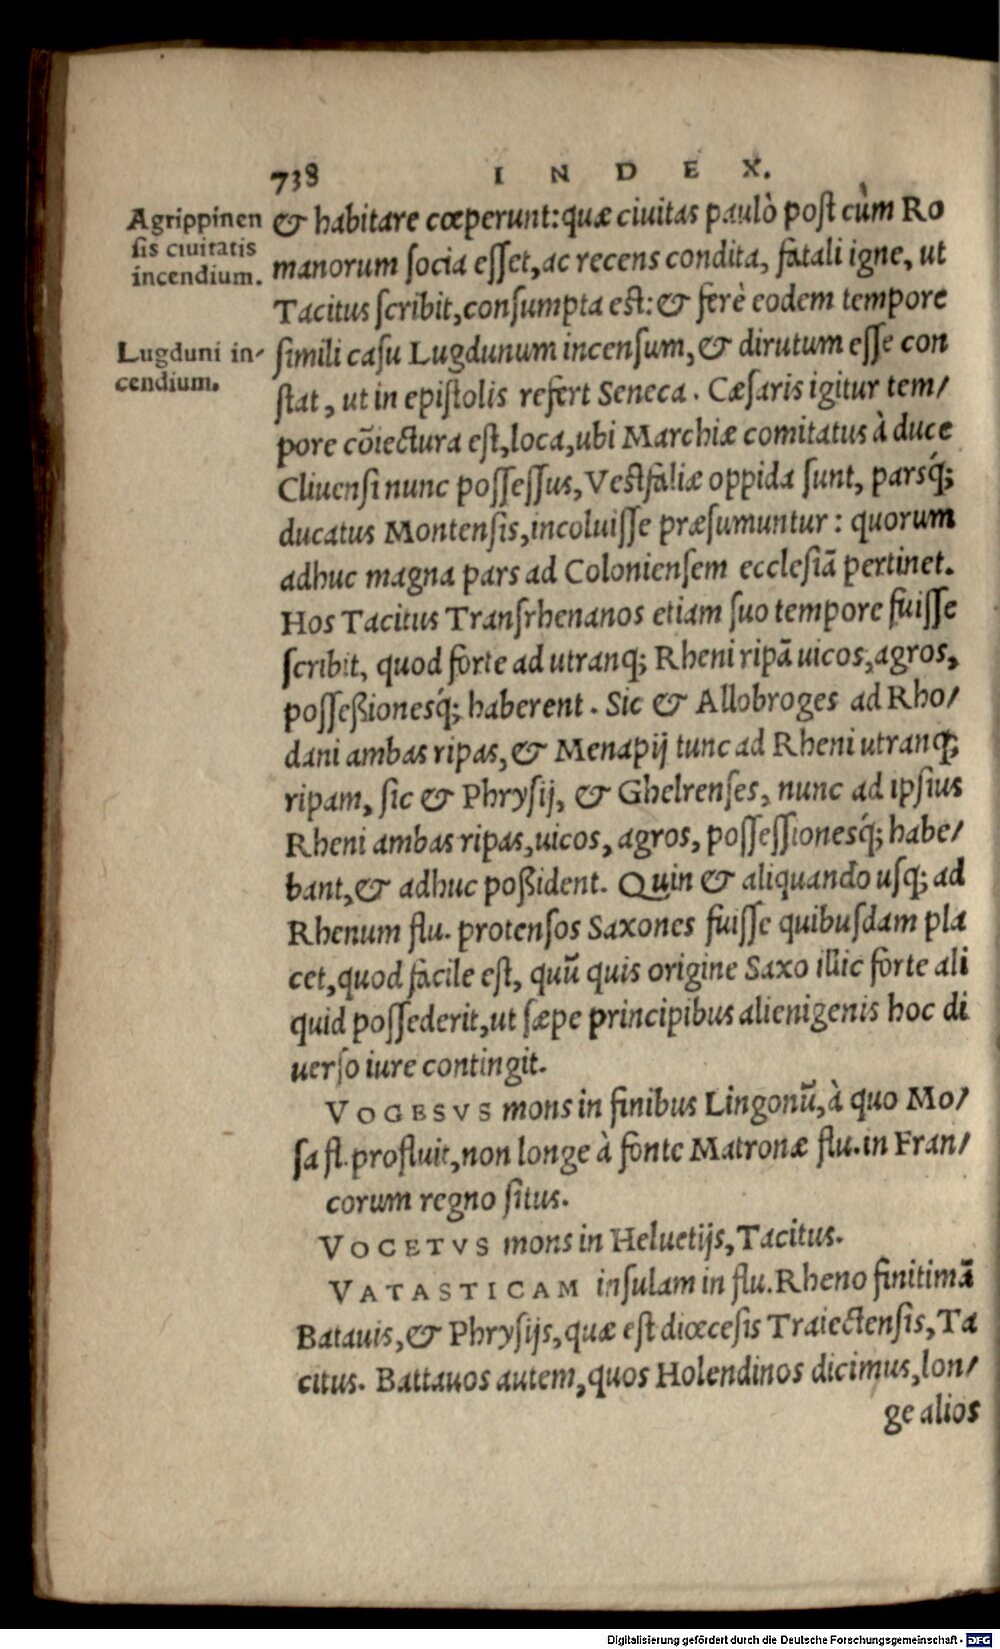 738 INDEX.
Agrippinen
sis ciuitatis
incendium.
& habitare cœperunt: quæ ciuitas paulò post cùm Ro
manorum socia esset, ac recens condita, fatali igne, ut
Tacitus scribit, consumpta est: & ferè eodem tempore
Lugduni in-
cendium.
simili casu Lugdunum incensum, & dirutum esse con
stat, ut in epistolis refert Seneca. Cæsaris igitur tem/
pore cõiectura est, loca, ubi Marchiæ comitatus à duce
Cliuensi nunc possessus, Vestfaliæ oppida sunt, parsq́;
ducatus Montensis, incoluisse præsumuntur: quorum
adhuc magna pars ad Coloniensem ecclesiã pertinet.
Hos Tacitus Transrhenanos etiam suo tempore fuisse
scribit, quod forte ad utranq; Rheni ripã uicos, agros,
posseßionesq́; haberent. Sic & Allobroges ad Rho/
dani ambas ripas, & Menapij tunc ad Rheni utranq;
ripam, sic & Phrysij, & Ghelrenses, nunc ad ipsius
Rheni ambas ripas, uicos, agros, possessionesq́; habe/
bant, & adhuc poßident. Quin & aliquando usq; ad
Rhenum flu. protensos Saxones fuisse quibusdam pla
cet, quod facile est, quũ quis origine Saxo illic forte ali
quid possederit, ut sæpe principibus alienigenis hoc di
uerso iure contingit.
VOGESVS mons in finibus Lingonũ, à quo Mo/
sa fl. profluit, non longe à fonte Matronæ flu. in Fran/
corum regno situs.
VOCETVS mons in Heluetijs, Tacitus.
VATASTICAM insulam in flu. Rheno finitimã
Batauis, & Phrysijs, quæ est diœcesis Traiectensis, Ta
citus. Battauos autem, quos Holendinos dicimus, lon/
ge alios
Digitalisierung gefördert durch die Deutsche Forschungsgemeinschaft - DFG